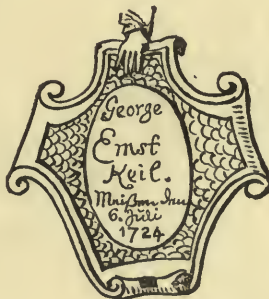 George
Ernst
Keil.
Meißen den
6. Juli
1724